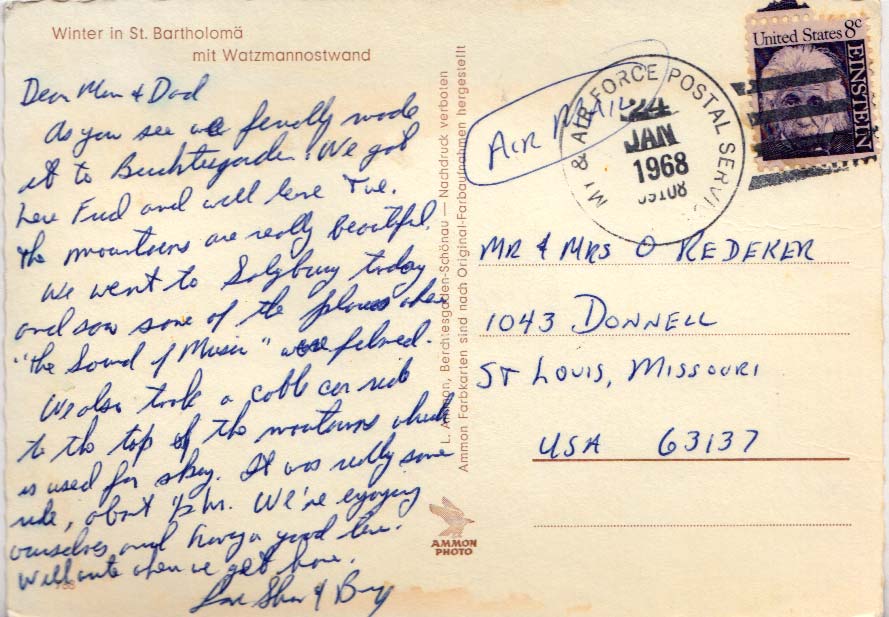 Winter in St. Bartholomä
mit Watzmannostwand
Dear Mom & Dad
As you see we finally made
it to Berchtesgaden. We got
here Fri and will leave Tue.
The mountains are really beautiful.
We went to Salzburg today
and saw some of the places where
"The Sound of Music" were filmed.
We also took a cable car ride
to the top of the mountains which
is used for skiing. It was really some
ride, about ½ hr. We're enjoying
ourselves and having a good time.
Will write when we get home.
Love
798
L. Ammon, Berchtesgaden-Schönau — Nachdruck verboten
Ammon Farbkarten sind nach Original-Farbaufnahmen hergestellt
AMMON
PHOTO
AIR MAIL
MY & AIR FORCE POSTAL SERVIC
24
JAN
1968
09108
United States 8c
EINSTEIN
MR & MRS O REDEKER
1043 DONNELL
ST LOUIS, MISSOURI
USA 63137